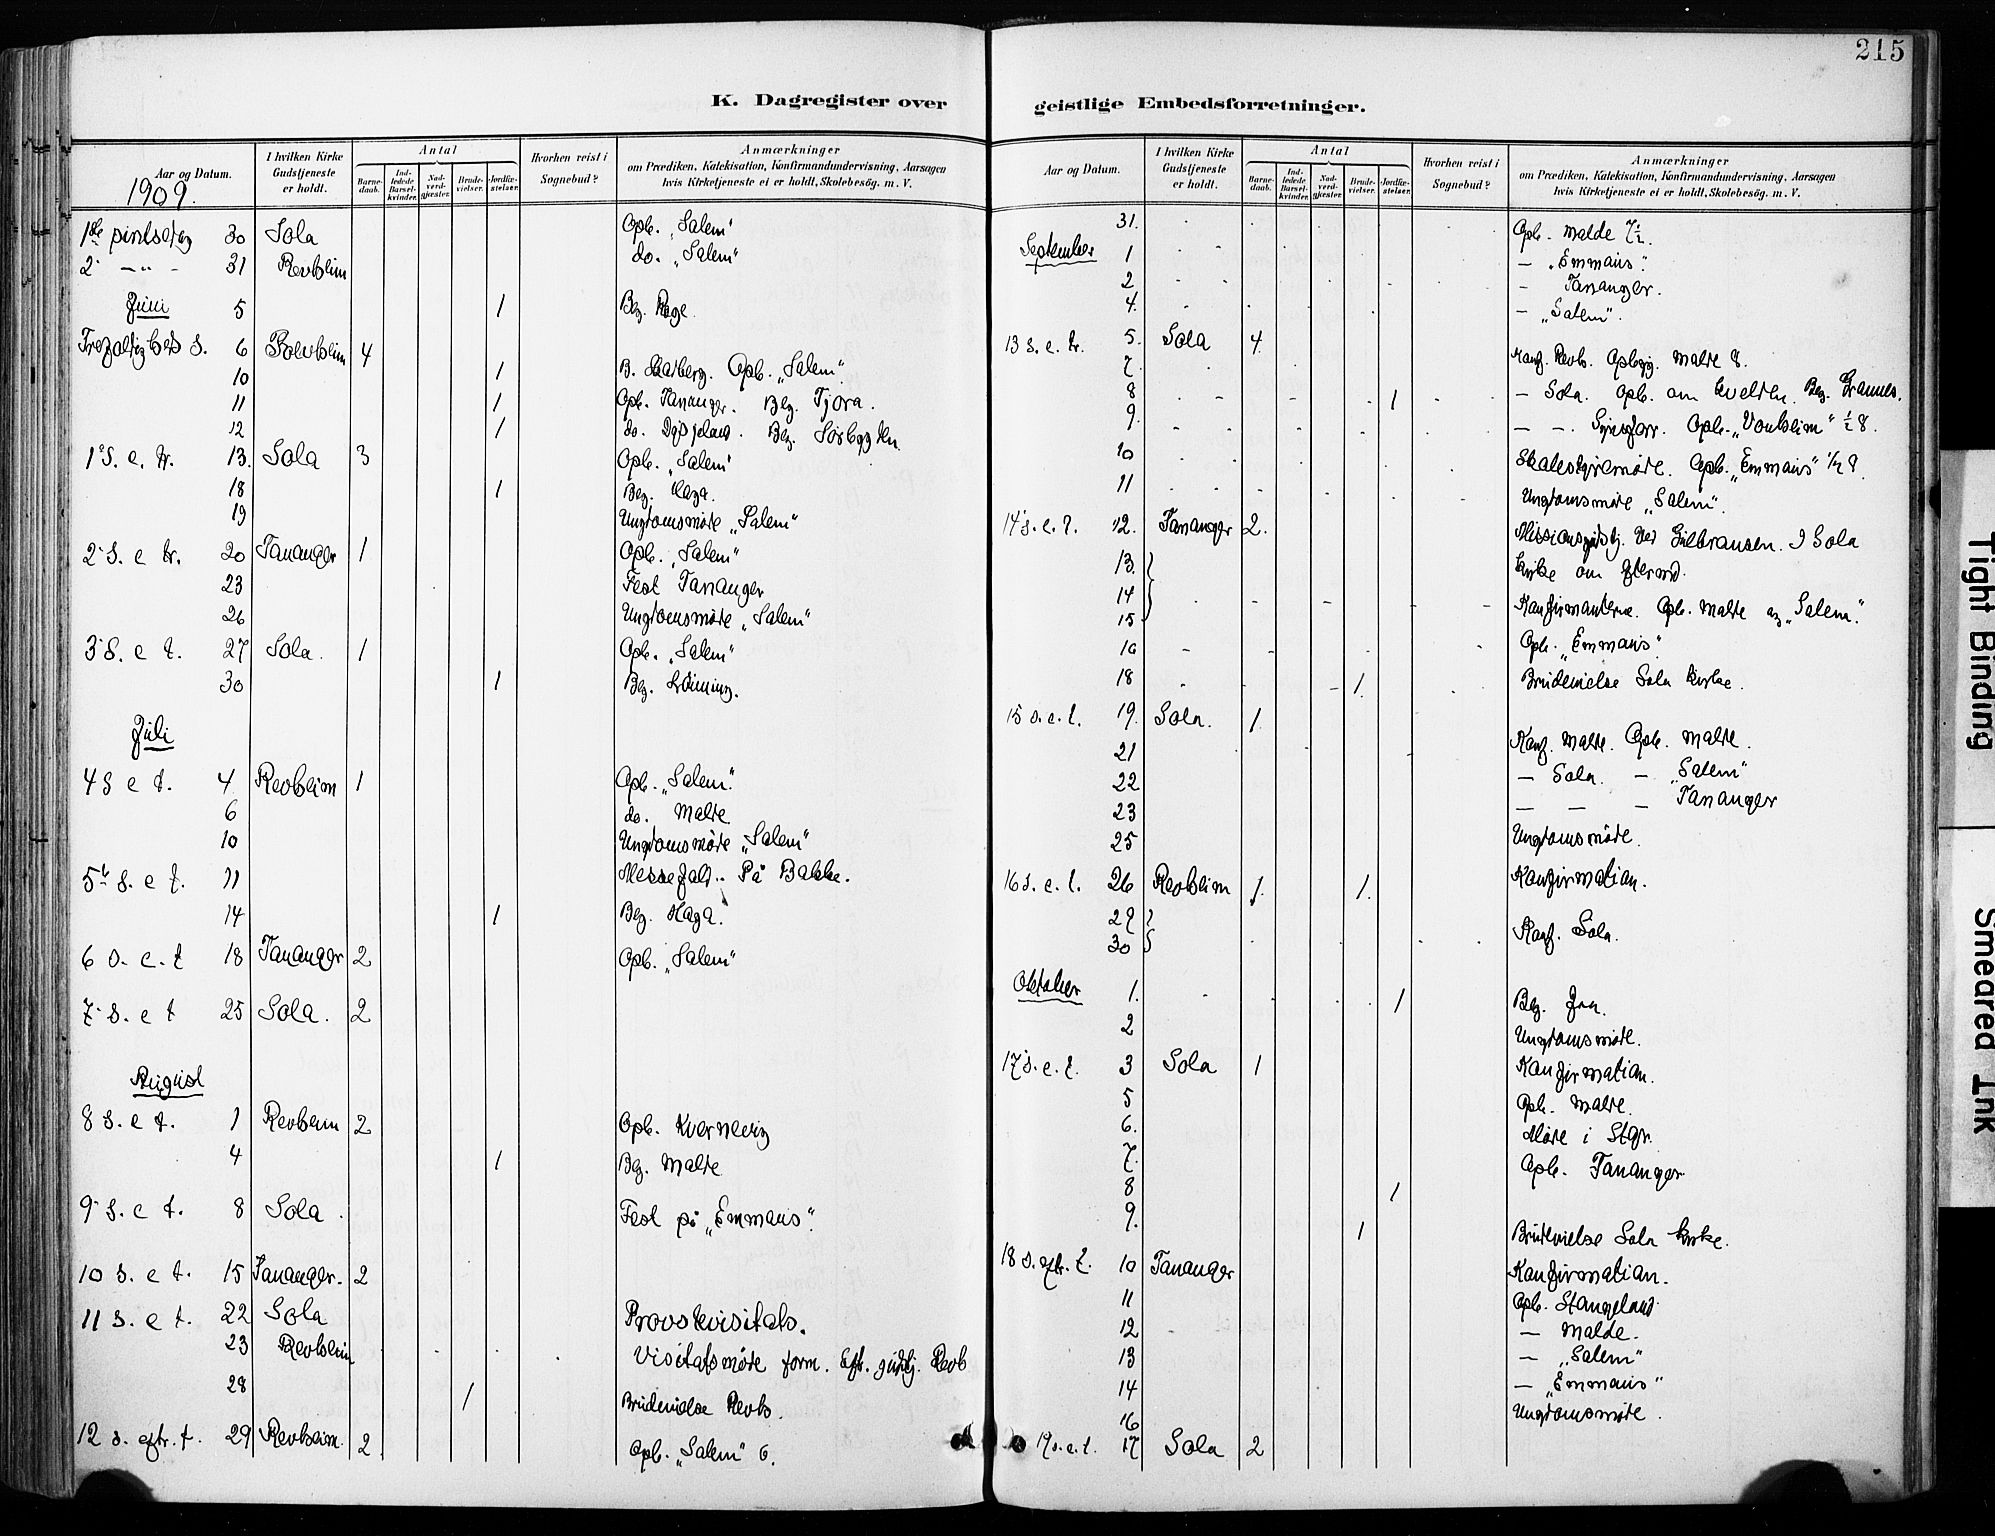 215
K. Dagregister over geistlige Embedsforretninger.
Aar og Datum.
1909.
I hvilken Kirke Gudstjeneste er holdt.
Antal
Barnedaab.
Indledede Barselkvinder.
Nadverdgjester.
Brudevielser.
Jordfæstelser.
Hvorhen reist i Sognebud?
Anmærkninger
om Prædiken, Katekisation, Konfirmandundervisning, Aarsagen
hvis Kirketjeneste ei er holdt, Skolebesøg. m. V.
30 Sola Opb. „Salem"
2 - " - 31 Revheim do. „Salem"
Juni 5 1 Beg.
6 4
10 1 B. Opb. „Salem".
11 1 Opb. Tananger. Beg. Tjora.
12 1 do. Beg.
1 S. e. tr. 13. Sola 3 Opb. „Salem"
18 1 Beg. Haga.
19 Ungdomsmøde „Salem"
2 S. e tr. 20 Tananger 1 Opb. „Salem"
23 Fest Tananger
26 Ungdomsmøde „Salem"
3 S. e t. 27 Sola. 1 Opb. „Salem"
30 1 Beg.
Juli
4 S e t. 4 Revheim 1 Opb. „Salem".
6 do. Malde
10 Ungdomsmøde „Salem"
5 s. e t. 11 Messefald. På Bakke.
14 1 Beg. Haga.
6 s. e. t 18 Tananger 2 Opb. „Salem"
7 s. e t 25 Sola. 2
August
8 s. e t. 1 Revheim 2 Opb. Kvernevig
4 1 Beg. Malde
9 s. e t. 8 Sola. Fest på „Emmaus".
10 s. e t. 15 Tananger. 2
11 s. e t. 22 Sola Provstevisitats.
23 Revheim Visitatsmøde form. Eft. gudstj. Revh
28 1 Brudevielse Revh.
12 s. eftr. t. 29 Revheim. 2 Opb. „Salem" 6.
Aar og Datum.
I hvilken Kirke Gudstjeneste er holdt.
Antal
Barnedaab.
Indledede Barselkvinder.
Nadverdgjester.
Brudevielser.
Jordfæstelser.
Hvorhen reist i Sognebud?
Anmærkninger
om Prædiken, Katekisation, Konfirmandundervisning, Aarsagen
hvis Kirketjeneste ei er holdt, Skolebesøg. m. V.
31. Opb. Malde 7½.
September 1 — „Emmaus".
2 - Tananger.
4. - „Salem".
13 s. e. tr. 5. Sola 4.
7. Konf. Revh. Opbyg. Malde 8.
8 1 — Sola. Opb. om kvelden. Beg. Grannes.
9. — —. Opb. „Vonheim" ½ 8.
10 Opb. „Emmaus" ½ 8.
11 Ungdomsmøde „Salem".
14 s. e. t. 12. Tananger 2. Missionsgudstj. ved Gulbransen. I Sola
13. kirke om eftermd.
14 Konfirmanterne. Opb. Malde og „Salem".
15
16 Opb. „Emmaus"
18 1. Brudevielse Sola kirke.
15 s. e. t. 19. Sola. 1.
21 Konf. Malde. Opb. Malde.
22 — Sola. — „Salem"
23 — — — Tananger
25 Ungdomsmøde.
16 s. e. t. 26 Revheim 1. 1. Konfirmation.
29
30 Konf. Sola.
Oktober 1. 1 Beg.
2 Ungdomsmøde.
17 s. e. t. 3 Sola 1 Konfirmation.
5 Opb. Malde.
6. Møde i Stgr.
7. Opb. Tananger
8 1
9. 1 Brudevielse Sola kirke.
18 s. eftr. t. 10 Tananger Konfirmation.
11 Opb. Stangeland.
12 — Malde.
13 — „Salem"
14 — „Emmaus"
16 Ungdomsmøde.
19 s. e. t. 17 Sola 2
Tight Binding
Smeared Ink